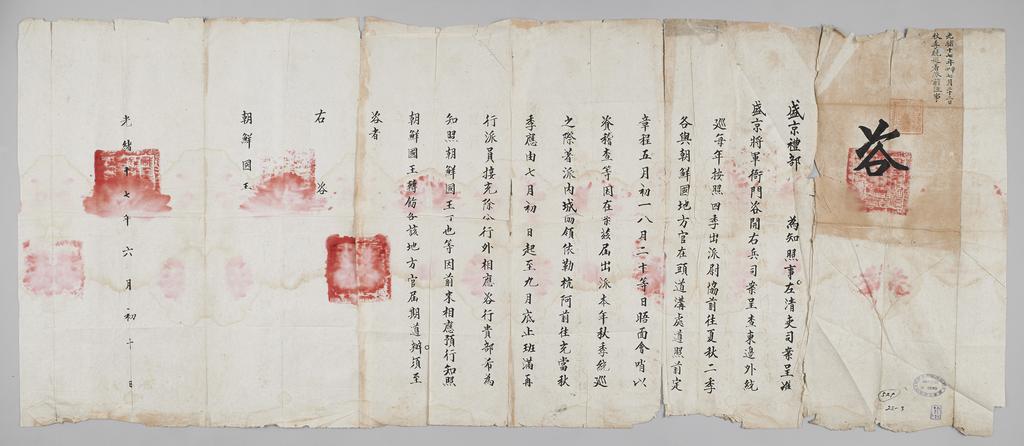 光緒十七年七月二十六日
秋季統巡着派前往事
咨
盛京禮部 為知照事左清吏司案呈准
盛京將軍衙門咨開右兵司案呈查東邊外統
巡每年按照四季出派尉協前往夏秋二季
各與朝鮮國地方官在頭道溝處遵照前定
章程五月初一八月二十等日晤面會哨以
資稽查等因在案茲屆出派本年秋季統巡
之際著派內城四領依勒杭阿前往充當秋
季應由七月初 日起至九月底止班滿再
行派員接充除分行外相應咨行貴部希為
知照朝鮮國王可也等因前來相應預行知照
朝鮮國王轉飭各該地方官屆期遵辦須至
咨者
右 咨
朝鮮國王
光緒十七年六月初十日
527
25-3